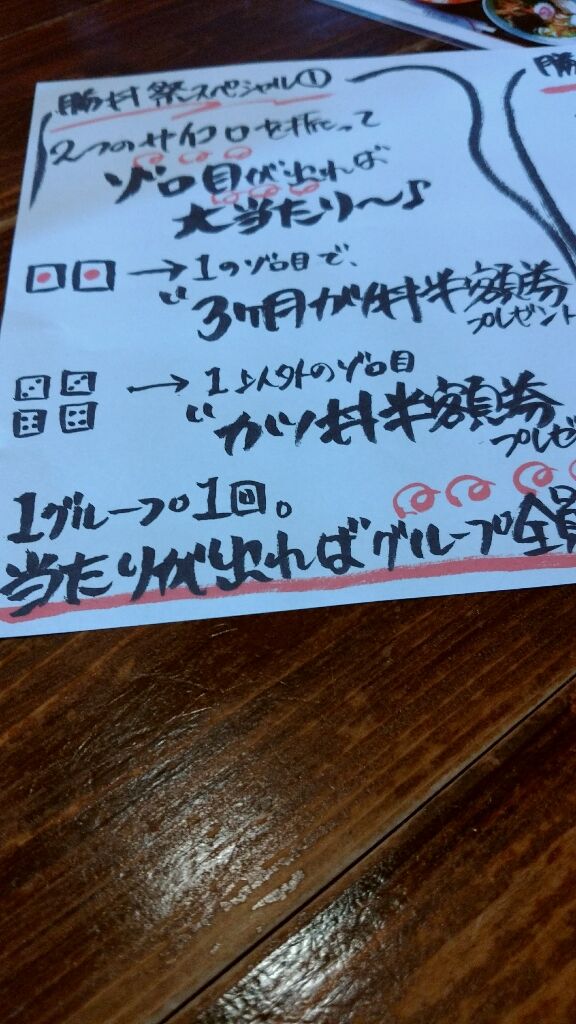 勝村祭スペシャル①
2つのサイコロを振って
ゾロ目が出れば
大当たり〜♪
→1のゾロ目で、
"3ヶ月ガソ料半額券
プレゼント
→1以外のゾロ目
"ガソ料半額券
プレゼ
1グループ1回。
当たりが出ればグループ全員
勝